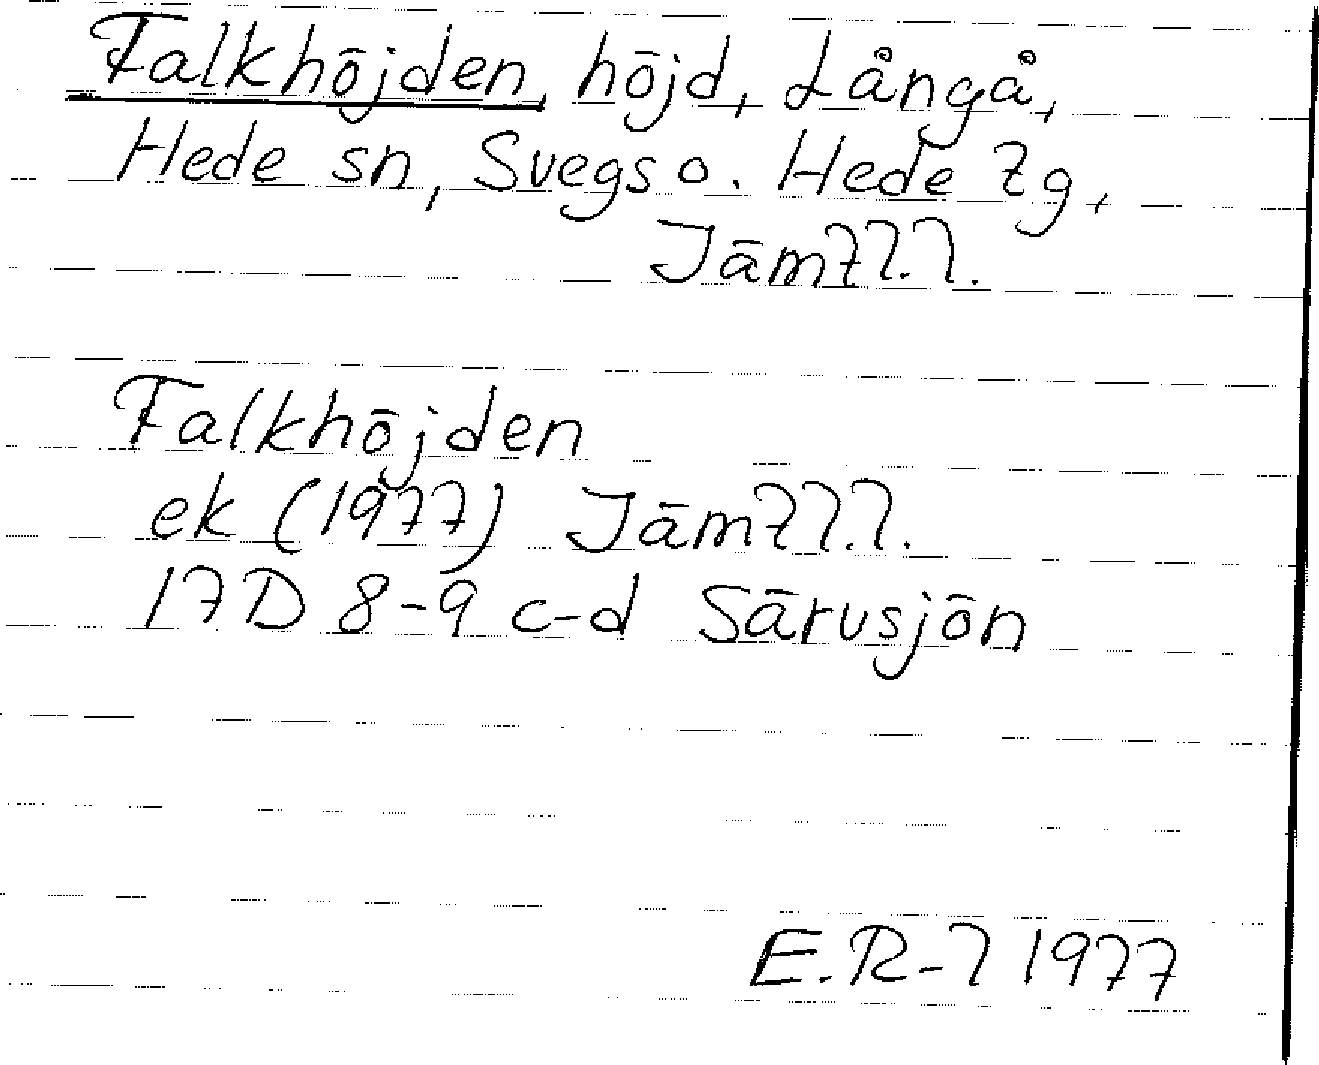 Falkhöjden, höjd, Långå,
Hede sn, Svegs o. Hede tg,
Jämtl.l.
Falkhöjden
ek (1977) Jämtl.l.
17D 8-9 c-d Särvsjön
E.R-l 1977